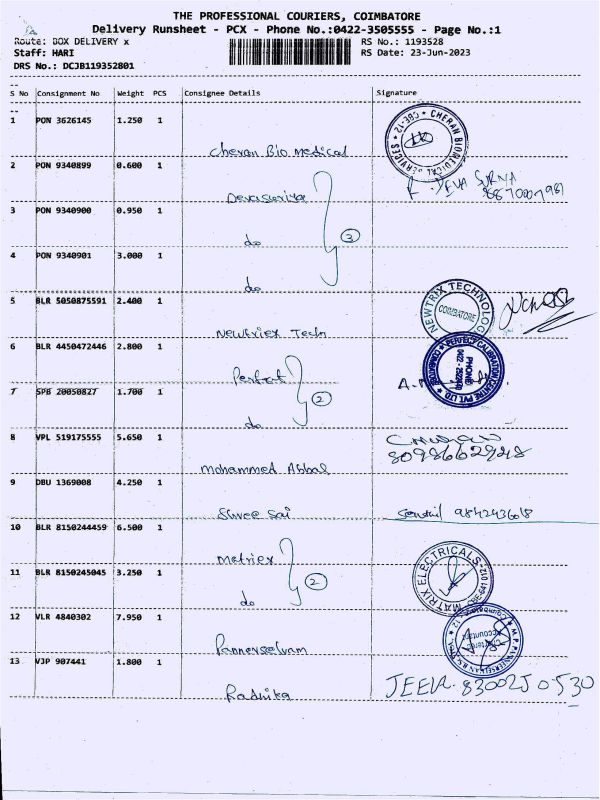 THE PROFESSIONAL COURIERS, COIMBATORE
Delivery Runsheet - PCX - Phone No.:0422-3505555 - Page No.:1
Route: BOX DELIVERY x RS No.: 1193528
Staff: HARI RS Date: 23-Jun-2023
DRS No.: DCJB119352801
S No Consignment No Weight PCS Consignee Details Signature
1 PON 3626145 1.250 1
Cheran Bio Medical
CHERAN BIOMEDICAL SERVICES
CBE-12
2 PON 9340899 0.600 1
Devasuriya
3 PON 9340900 0.950 1
do
3
4 PON 9340901 3.000 1
do
5 BLR 5050875591 2.400 1
Newtriex Tech
NEWTRIX TECHNOLOGY
COIMBATORE
6 BLR 4450472446 2.800 1
Perfect
PERFECT CALIBRATION CENTRE PVT LTD
7 SPB 20050827 1.700 1
do
2
8 VPL 519175555 5.650 1
Mohammed Abbas
8098662948
9 DBU 1369008 4.250 1
Shree Sai
10 BLR 8150244459 6.500 1
Matriex
MATRIX ELECTRICALS
11 BLR 8150245045 3.250 1
do
2
12 VLR 4840302 7.950 1
Panneerselvam
Chartered Accountant
13 VJP 907441 1.800 1
Radhika
JEEVA